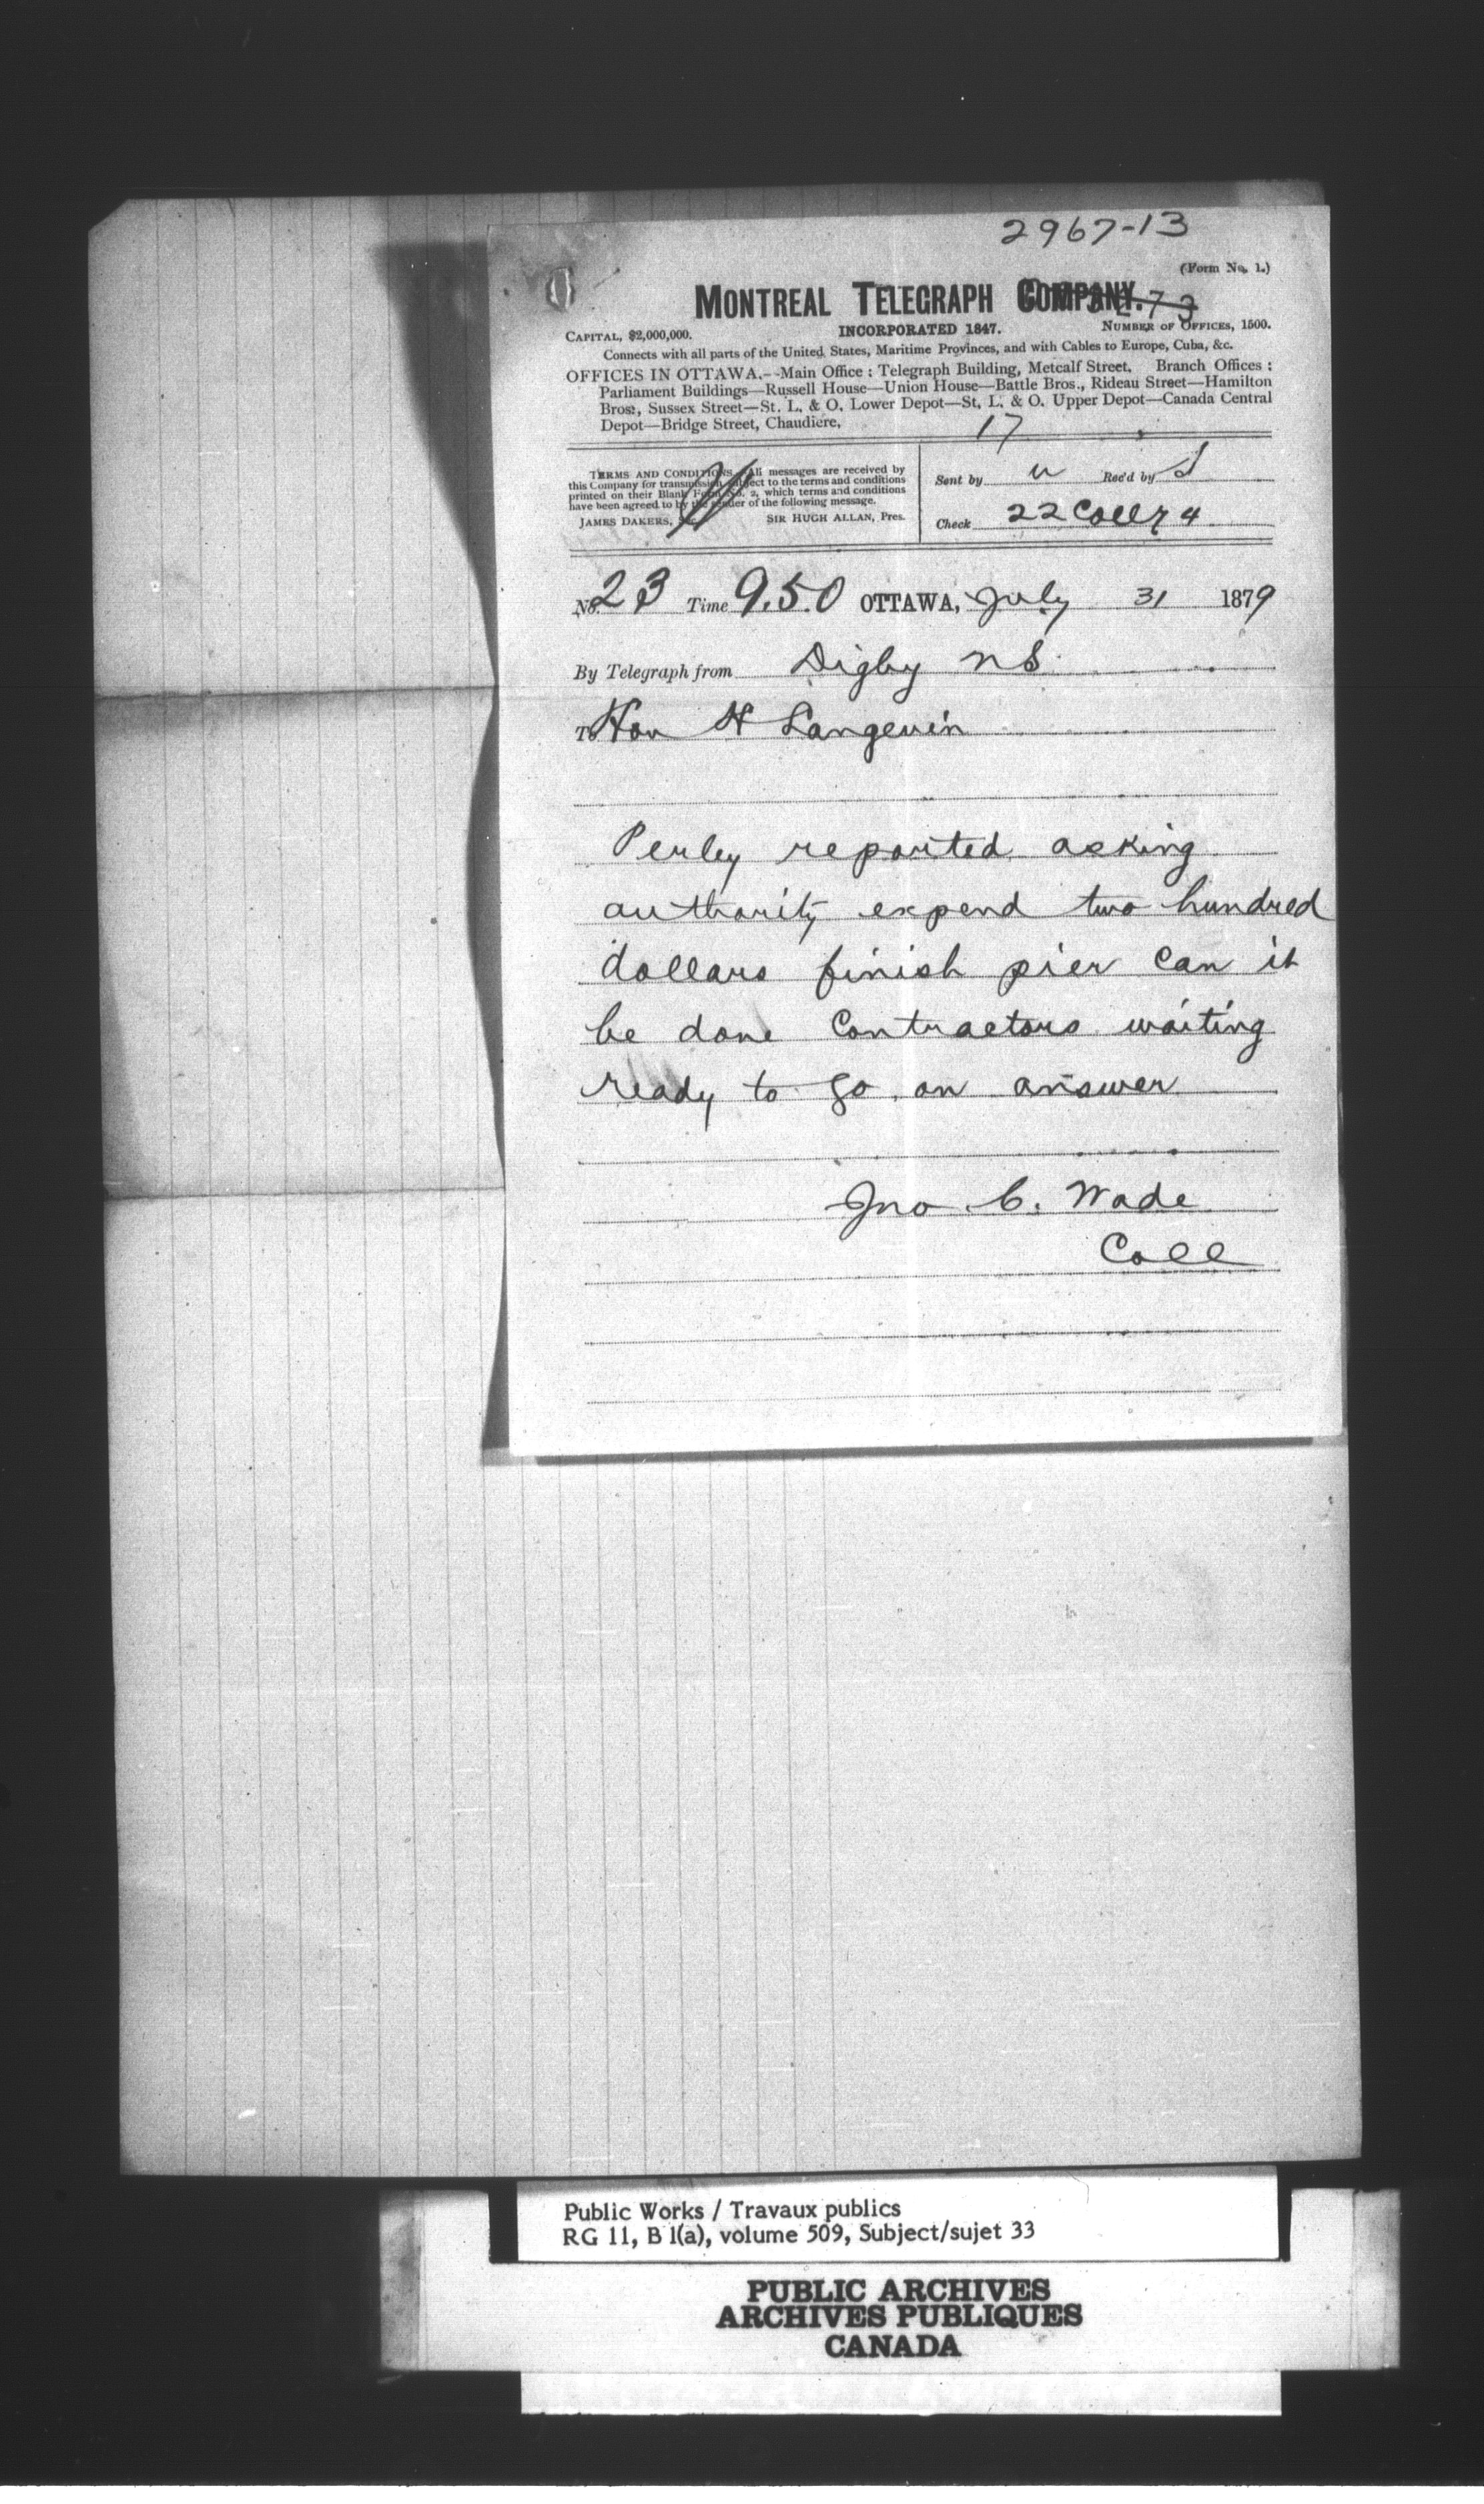 2967-13
(Form No. 1.)
MONTREAL TELEGRAPH COMPANY.
CAPITAL, $2,000,000. INCORPORATED 1847. NUMBER OF OFFICES, 1500.
Connects with all parts of the United States, Maritime Provinces, and with Cables to Europe, Cuba, &c.
OFFICES IN OTTAWA.--Main Office: Telegraph Building, Metcalf Street. Branch Offices:
Parliament Buildings—Russell House—Union House—Battle Bros., Rideau Street—Hamilton
Bros., Sussex Street—St. L. & O. Lower Depot—St. L. & O. Upper Depot—Canada Central
Depot—Bridge Street, Chaudiere.
17
TERMS AND CONDITIONS. All messages are received by
this Company for transmission subject to the terms and conditions
printed on their Blank Form No. 2, which terms and conditions
have been agreed to by the sender of the following message.
JAMES DAKERS, Sec. SIR HUGH ALLAN, Pres.
Sent by u Rec'd by S
Check 22 Coll 74
No. 23 Time 9.50 OTTAWA, July 31 1879
By Telegraph from Digby NS
To Hon H Langevin
Perley reported asking
authority expend two hundred
dollars finish pier can it
be done Contractors waiting
ready to go on answer
Jno C. Wade
Coll
Public Works / Travaux publics
RG 11, B 1(a), volume 509, Subject/sujet 33
PUBLIC ARCHIVES
ARCHIVES PUBLIQUES
CANADA